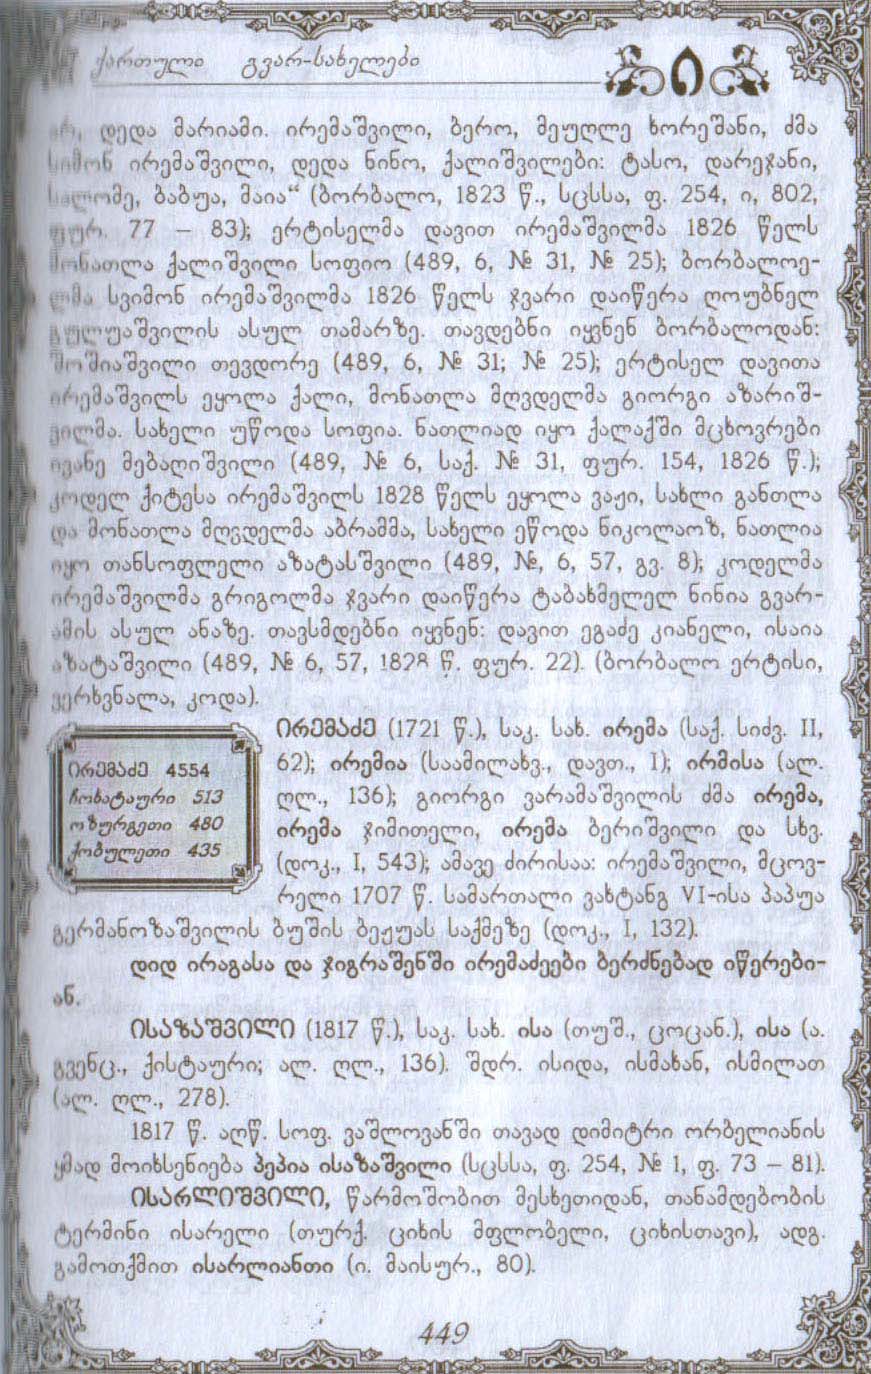 ქართული გვარ-სახელები
ი
დედა მარიამი. ირემაშვილი, ბერო, მეუღლე ხორეშანი, ძმა
სიმონ ირემაშვილი, დედა ნინო, ქალიშვილები: ტასო, დარეჯანი,
სალომე, ბაბუა, მაია“ (ბორბალო, 1823 წ., სცსსა, ფ. 254, ი, 802,
ფურ. 77 – 83); ერტისელმა დავით ირემაშვილმა 1826 წელს
მონათლა ქალიშვილი სოფიო (489, 6, № 31, № 25); ბორბალოე-
ლმა სვიმონ ირემაშვილმა 1826 წელს ჯვარი დაიწერა ღოუბნელ
გულუაშვილის ასულ თამარზე. თავდებნი იყვნენ ბორბალოდან:
შოშიაშვილი თევდორე (489, 6, № 31; № 25); ერტისელ დავითა
ირემაშვილს ეყოლა ქალი, მონათლა მღვდელმა გიორგი აზარიშ-
ვილმა. სახელი უწოდა სოფია. ნათლიად იყო ქალაქში მცხოვრები
ივანე მებაღიშვილი (489, № 6, საქ. № 31, ფურ. 154, 1826 წ.);
კოდელ ქიტესა ირემაშვილს 1828 წელს ეყოლა ვაჟი, სახლი განთლა
და მონათლა მღვდელმა აბრამმა, სახელი ეწოდა ნიკოლაოზ, ნათლია
იყო თანსოფლელი აზატასშვილი (489, №, 6, 57, გვ. 8); კოდელმა
ირემაშვილმა გრიგოლმა ჯვარი დაიწერა ტაბახმელელ ნინია გვარ-
ამის ასულ ანაზე. თავსმდებნი იყვნენ: დავით ეგაძე კიანელი, ისაია
აზატაშვილი (489, № 6, 57, 1828 წ. ფურ. 22). (ბორბალო ერტისი,
ვერხვნალა, კოდა).
ირემაძე 4554
ჩოხატაური 513
ოზურგეთი 480
ქობულეთი 435
ირემაძე (1721 წ.), საკ. სახ. ირემა (საქ. სიძვ. II,
62); ირემია (საამილახვ., დავთ., I); ირმისა (ალ.
ღლ., 136); გიორგი ვარამაშვილის ძმა ირემა,
ირემა ჯიმითელი, ირემა ბერიშვილი და სხვ.
(დოკ., I, 543); ამავე ძირისაა: ირემაშვილი, მცოვ-
რელი 1707 წ. სამართალი ვახტანგ VI-ისა პაპუა
გერმანოზაშვილის ბუშის ბეჟუას საქმეზე (დოკ., I, 132).
დიდ ირაგასა და ჯიგრაშენში ირემაძეები ბერძნებად იწერები-
ან.
ისაზაშვილი (1817 წ.), საკ. სახ. ისა (თუშ., ცოცან.), ისა (ა.
გვენც., ქისტაური; ალ. ღლ., 136). შდრ. ისიდა, ისმახან, ისმილათ
(ალ. ღლ., 278).
1817 წ. აღწ. სოფ. ვაშლოვანში თავად დიმიტრი ორბელიანის
ყმად მოიხსენიება პეპია ისაზაშვილი (სცსსა, ფ. 254, № 1, ფ. 73 – 81).
ისარლიშვილი, წარმოშობით მესხეთიდან, თანამდებობის
ტერმინი ისარელი (თურქ. ციხის მფლობელი, ციხისთავი), ადგ.
გამოთქმით ისარლიანთი (ი. მაისურ., 80).
449